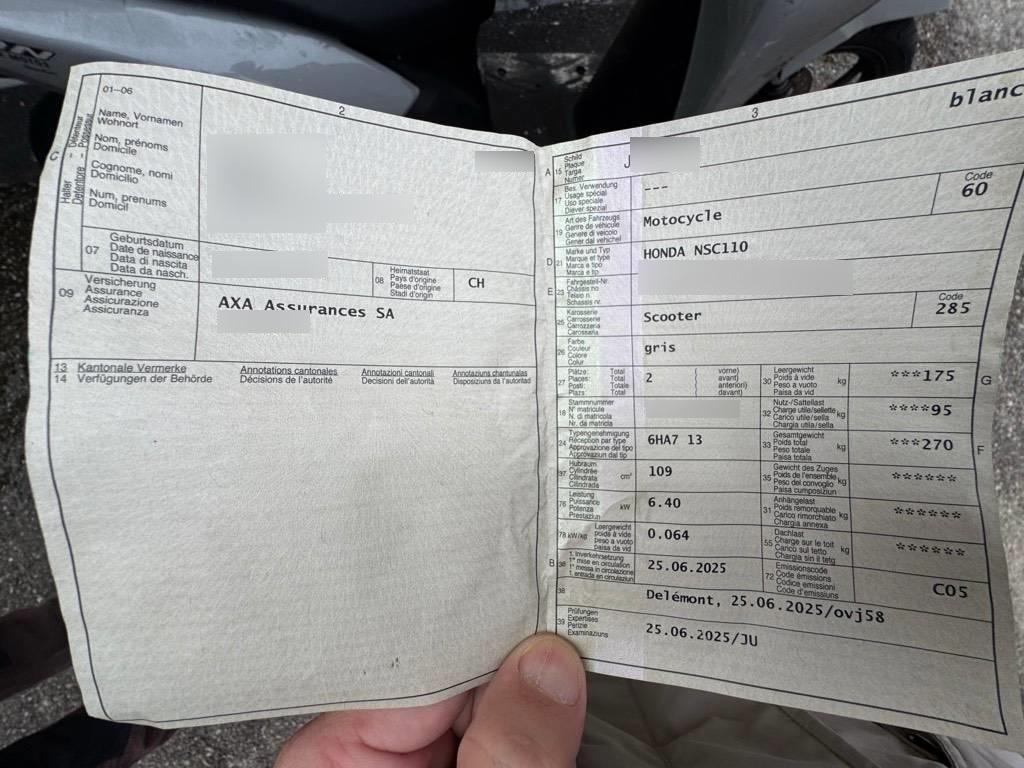 ON
01–06
2
Name, Vornamen
Wohnort
Nom, prénoms
Domicile
Cognome, nomi
Domicilio
Num, prenums
Domicil
C
Halter
Détenteur
Detentore
Possessur
07
Geburtsdatum
Date de naissance
Data di nascita
Data da nasch.
08
Heimatstaat
Pays d'origine
Paese d'origine
Stadi d'origin
CH
09
Versicherung
Assurance
Assicurazione
Assicuranza
AXA Assurances SA
13 Kantonale Vermerke Annotations cantonales Annotazioni cantonali Annotaziuns chantunalas
14 Verfügungen der Behörde Décisions de l'autorité Decisioni dell'autorità Disposiziuns da l'autoritad
3
blanc
A 15
Schild
Plaque
Targa
Numer
J
17
Bes. Verwendung
Usage spécial
Uso speciale
Diever spezial
---
19
Art des Fahrzeugs
Genre de véhicule
Genere di veicolo
Gener dal vehichel
Motocycle
Code
60
D 21
Marke und Typ
Marque et type
Marca e tipo
Marca e tip
HONDA NSC110
E 23
Fahrgestell-Nr.
Châssis no
Telaio n.
Schassis nr.
25
Karosserie
Carrosserie
Carrozzeria
Carossaria
Scooter
Code
285
26
Farbe
Couleur
Colore
Colur
gris
27
Plätze: Total vorne)
Places: Total avant)
Posti: Totale anteriori)
Plazs: Total davant)
2
30
Leergewicht
Poids à vide
Peso a vuoto
Paisa da vid
kg
***175
G
18
Stammnummer
N° matricule
N. di matricola
Nr. da matricla
32
Nutz-/Sattellast
Charge utile/sellette
Carico utile/sella
Chargia utila/sella
kg
****95
24
Typengenehmigung
Réception par type
Approvazione del tipo
Approvaziun dal tip
6HA7 13
33
Gesamtgewicht
Poids total
Peso totale
Paisa totala
kg
***270
F
37
Hubraum
Cylindrée
Cilindrata
Cilindrada
cm³
109
35
Gewicht des Zuges
Poids de l'ensemble
Peso del convoglio
Paisa cumposiziun
kg
******
76
Leistung
Puissance
Potenza
Prestaziun
kW
6.40
31
Anhängelast
Poids remorquable
Carico rimorchiato
Chargia annexa
kg
******
78 kW/kg
Leergewicht
poids à vide
peso a vuoto
paisa da vid
0.064
55
Dachlast
Charge sur le toit
Carico sul tetto
Chargia sin il tetg
kg
******
B 36
1. Inverkehrsetzung
1re mise en circulation
1a messa in circolazione
1. entrada en circulaziun
25.06.2025
72
Emissionscode
Code émissions
Codice emissioni
Code d'emissiuns
C05
38
Delémont, 25.06.2025/ovj58
39
Prüfungen
Expertises
Perizie
Examinaziuns
25.06.2025/JU